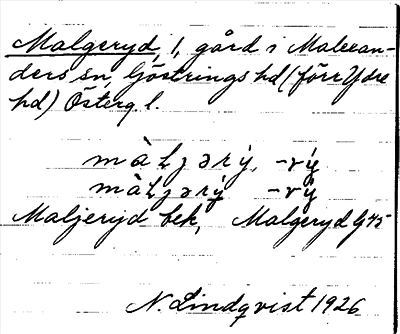 Malgeryd, 1, gård i Malexan-
ders sn, Göstrings hd (förr Ydre
hd) Österg l.
màLjərý, -rý
màLjərý -rý
Maljeryd bek, Malgeryd G45
N. Lindqvist 1926